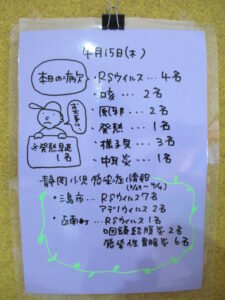 4月15日(木)
本日の病欠
・RSウイルス…4名
・咳…2名
・風邪…2名
・発熱…1名
・様子見…3名
・中耳炎…1名
お大事に
※発熱早退
1名
静岡小児感染症情報
・三島市…RSウイルス7名
アデノウイルス2名
・函南町…RSウイルス1名
咽頭結膜炎2名
感染性胃腸炎6名